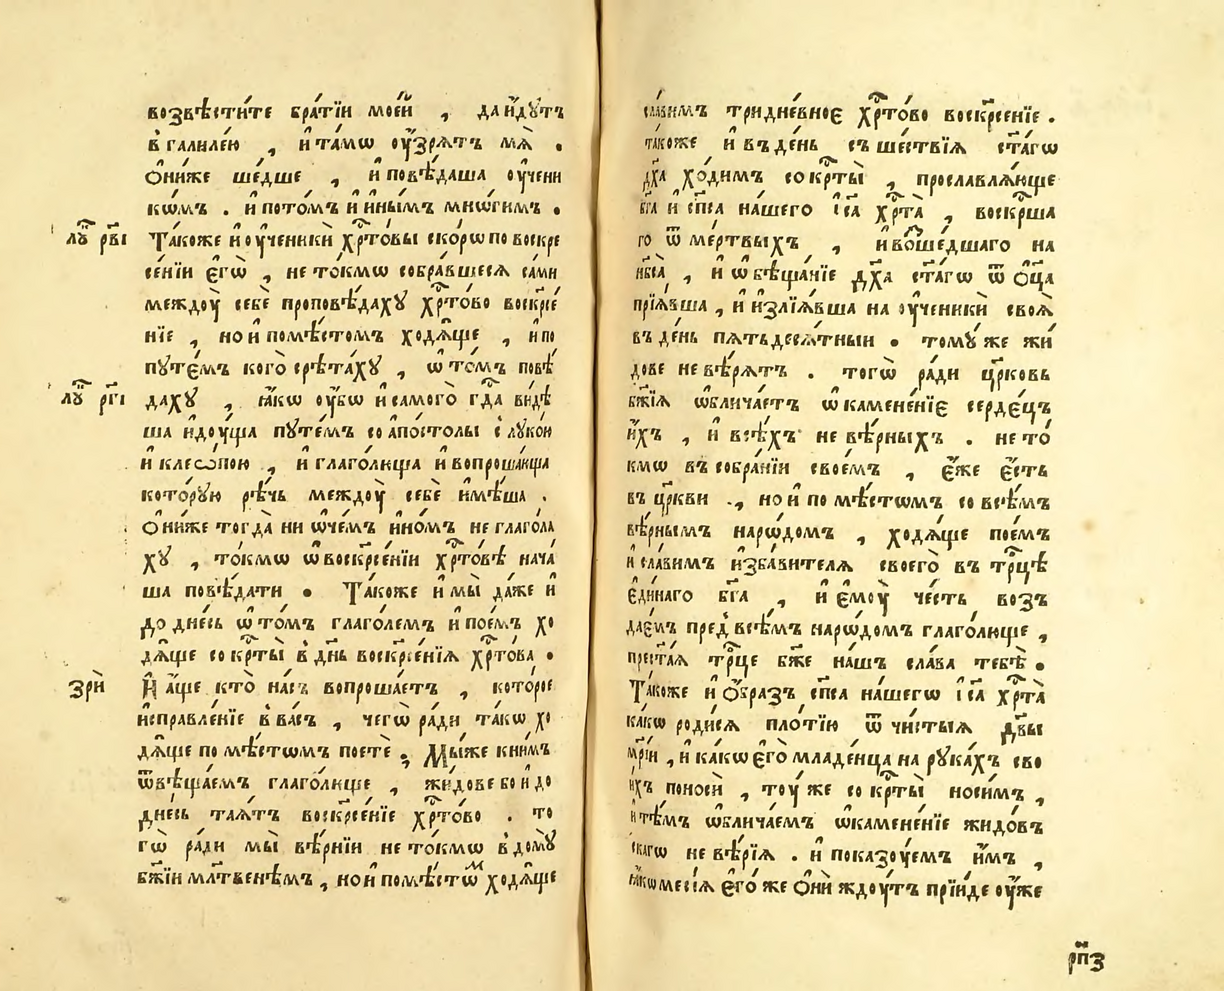 возвѣсти́те бра́тїи мое́й , да и҆дꙋ́тъ
в̾ галиле́ю , и҆ та́мѡ оу҆́зрѧтъ мѧ̀ .
Ѻ҆ни́же ше́дше , и҆ повѣ́даша оу҆чени
кѡ́мъ . и҆ пото́мъ и҆ и҆ны́мъ мнѡ́гимъ .
лꙋ҃ рв҃і
Та́коже и҆ оу҆ченикѝ хр҃то́вы ско́рѡ по воскре
се́нїи є҆гѡ̀ , не то́кмѡ собра́вшесѧ са́ми
междоу̀ себѐ проповѣ́дахꙋ хр҃то́во воскр҃се́
нїе , но и҆ по мѣ́стомъ ходѧ́ще , и҆ по
пꙋте́мъ кого̀ срѣта́хꙋ , ѡ҆ то́мъ повѣ́
лꙋ҃ рг҃і
дахꙋ , ꙗ҆́кѡ оу҆́бѡ и҆ самого̀ гд҃а ви́дѣ
ша и҆доу́ща пꙋте́мъ со а҆по́столы с̾ лꙋко́ю
и҆ клео́пою , и҆ глаго́люща и҆ вопроша́юща
котору́ю рѣ́чь междоу̀ себѐ и҆мѣ́ша .
Ѻ҆ни́же тогда̀ ни ѡ҆ че́мъ и҆но́мъ не глаго́ла
хꙋ , то́кмѡ ѡ҆ воскр҃се́нїи хр҃то́вѣ нача́
ша повѣ́дати . Та́коже и҆ мы̀ да́же и҆
до дне́сь ѡ҆ то́мъ глаго́лемъ и҆ пое́мъ хо
дѧ́ще со кр҃ты̀ в̾ дн҃ь воскр҃се́нїѧ хр҃то́ва .
зрѝ
И҆ а҆́ще кто̀ на́съ вопроша́етъ , кото́рое
и҆справле́нїе в̾ ва́съ , чегѡ̀ ра́ди та́кѡ хо
дѧ́ще по мѣ́стѡмъ поетѐ ; Мы́же к ни́мъ
ѿвѣща́емъ глаго́люще , жи́дове бо и҆ до
дне́сь таѧ́тъ воскр҃се́нїе хр҃то́во . то
гѡ̀ ра́ди мы̀ вѣ́рнїи не то́кмѡ в̾ домꙋ̀
бж҃їи мл҃твенѣмъ , но и҆ по мѣ́стѡⷨ ходѧ́ще
сла́вимъ тридне́вноє хр҃то́во воскр҃се́нїе .
та́коже и҆ въ де́нь съше́ствїѧ ст҃а́гѡ
дх҃а хо́димъ со кр҃ты̀ , прославлѧ́юще
бг҃а и҆ сп҃са на́шего і҆с҃а хр҃та̀ , воскр҃ша
го ѿ ме́ртвыхъ , и҆ воше́дшаго на
нб҃са̀ , и҆ ѡ҆бѣща́нїе дх҃а ст҃а́гѡ ѿ ѻ҆ц҃а̀
прїѧ́вша , и҆ и҆злїѧ́вша на оу҆ченикѝ своѧ̀
въ де́нь пѧтьдесѧ́тныи . томꙋ́ же жи
дове не вѣ́рѧтъ . тогѡ̀ ра́ди цр҃ковь
бж҃їѧ ѡ҆блича́етъ ѡ҆камене́нїє серде́цъ
и҆́хъ , и҆ всѣ́хъ не вѣ́рныхъ . не то́
кмѡ въ собра́нїи свое́мъ , є҆́же є҆́сть
въ цр҃кви , но и҆ по мѣ́стѡмъ со всѣ́мъ
вѣ́рнымъ наро́дѡмъ , ходѧ́ще пое́мъ
и҆ сла́вимъ и҆зба́вителѧ своего̀ въ тр҃цѣ
є҆ди́наго бг҃а , и҆ є҆моу̀ че́сть возъ
дае́мъ пред̾ всѣ́мъ наро́дѡмъ глаго́люще ,
прес҃та́ѧ тр҃це бж҃е на́шъ сла́ва тебѣ̀ .
Та́коже и҆ ѻ҆́бразъ сп҃са на́шегѡ і҆с҃а хр҃та̀
ка́кѡ роди́сѧ пло́тїю ѿ чи́стыѧ дв҃ы
мр҃їи , и҆ ка́кѡ є҆го̀ младе́нца на рꙋка́хъ сво
и́хъ поносѝ , тоу́же со кр҃ты̀ но́симъ ,
и҆ тѣ́мъ ѡ҆блича́емъ ѡ҆камене́нїе жидо́въ
скагѡ не вѣ́рїѧ . и҆ показоу́емъ и҆́мъ ,
ꙗ҆́кѡ месі́ѧ є҆го́же ѻ҆нѝ ждоу́тъ прїи́де оу҆́же
рп҃з